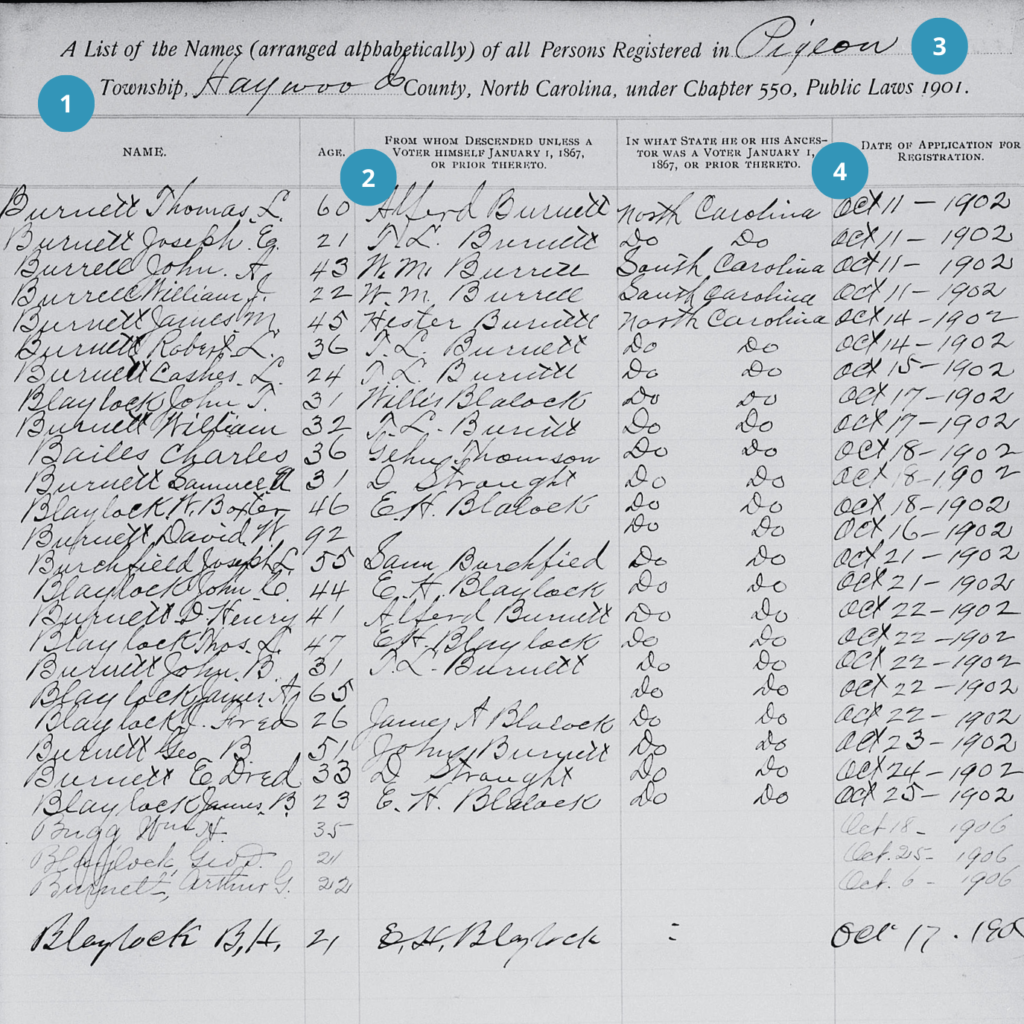 A List of the Names (arranged alphabetically) of all Persons Registered in Pigeon 3
1 Township, Haywood County, North Carolina, under Chapter 550, Public Laws 1901.
NAME. AGE. FROM WHOM DESCENDED UNLESS A VOTER HIMSELF JANUARY 1, 1867, OR PRIOR THERETO. IN WHAT STATE HE OR HIS ANCESTOR WAS A VOTER JANUARY 1, 1867, OR PRIOR THERETO. DATE OF APPLICATION FOR REGISTRATION.
2 4
Burnett Thomas L. 60 Alford Burnett North Carolina Oct 11 - 1902
Burnett Joseph 21 T. L. Burnett Do Do Oct 11 - 1902
Burrell John 43 W. M. Burrell South Carolina Oct 11 - 1902
Burrell William J. 22 W. M. Burrell South Carolina Oct 11 - 1902
Burnett James M. 45 Hester Burnett North Carolina Oct 14 - 1902
Burnett Robert L. 36 T. L. Burnett Do Do Oct 14 - 1902
Burnett L. 24 T L Burnett Do Do Oct 15 - 1902
Blaylock John T. 31 Willis Blalock Do Do Oct 17 - 1902
Burnett William 32 T. L. Burnett Do Do Oct 17 - 1902
Bailes Charles 36 Thomson Do Do Oct 18 - 1902
Burnett Samuel 31 D Strought Do Do Oct 18 - 1902
Blaylock W. Boxter 46 E H. Blalock Do Do Oct 18 - 1902
Burnett David W. 92 Do Do Oct 16 - 1902
Burchfield Joseph L 55 Burchfied Do Do Oct 21 - 1902
Blaylock John C. 44 E. H. Blaylock Do Do Oct 21 - 1902
Burnett D. Henry 41 Alford Burnett Do Do Oct 22 - 1902
Blaylock Thos. L. 47 E H. Blaylock Do Do Oct 22 - 1902
Burnett John B. 31 T. L. Burnett Do Do Oct 22 - 1902
Blaylock James 65 Do Do Oct 22 - 1902
Blaylock Fred 26 James A Blalock Do Do Oct 22 - 1902
Burnett Geo B. 51 John Burnett Do Do Oct 23 - 1902
Burnett E Dred 33 D Strought Do Do Oct 24 - 1902
Blaylock James B 23 E. H. Blalock Do Do Oct 25 - 1902
Bugg Wm H. 35 Oct 18 - 1906
Blaylock, Geo D. 21 Oct. 25 - 1906
Burnett, Arthur G. 22 Oct. 6 - 1906
Blaylock B, H. 21 E. H. Blaylock : Oct 17 - 190